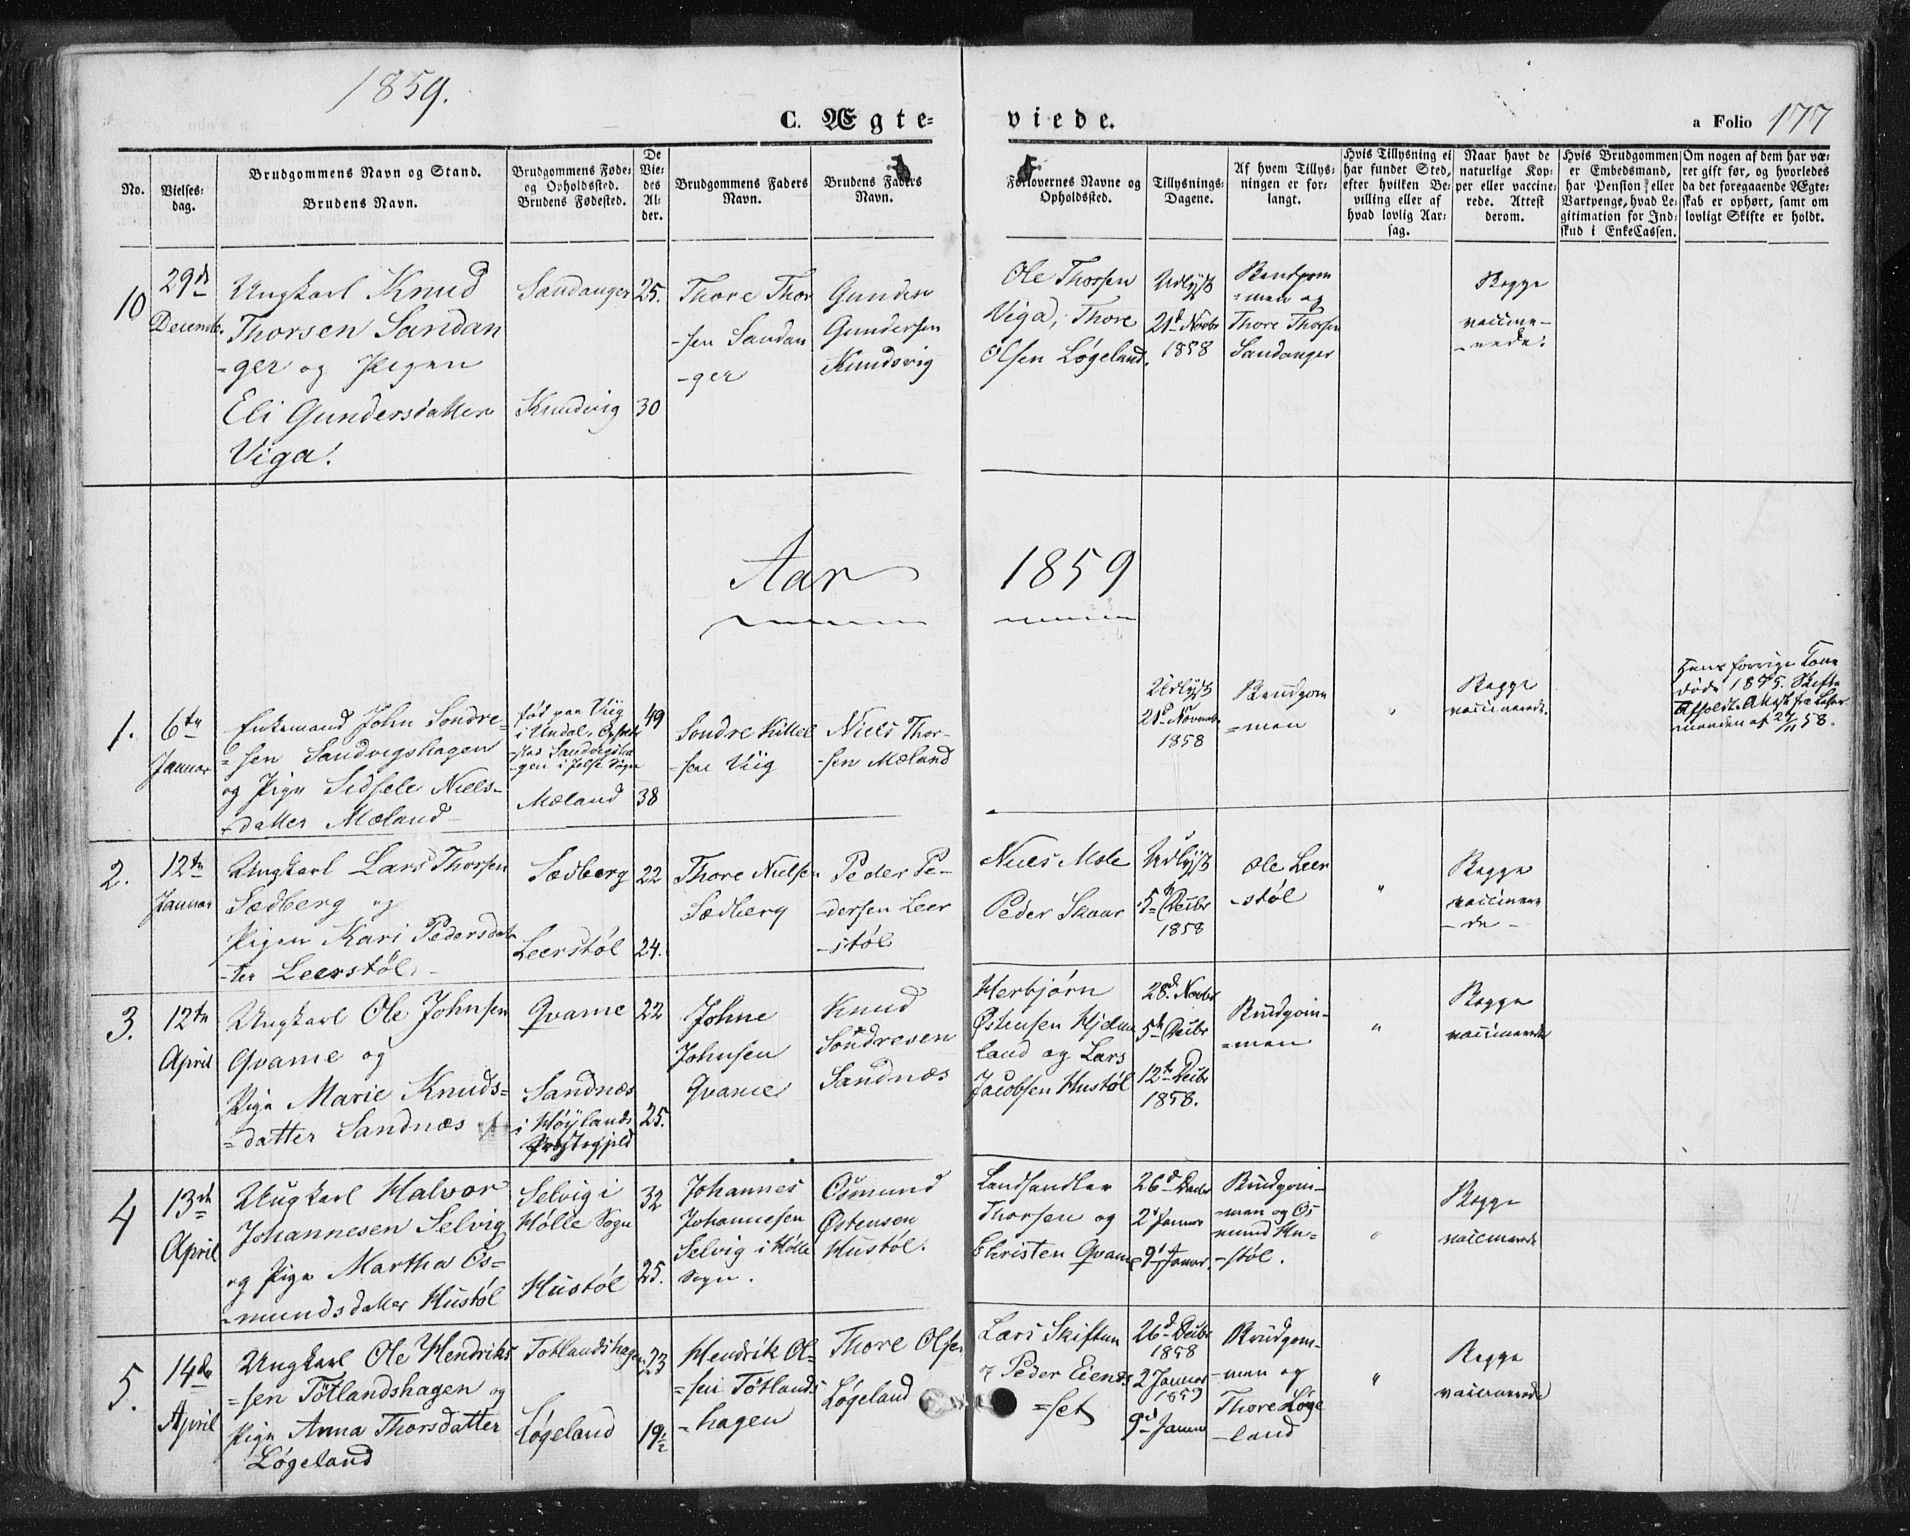 1859.
C. Ægte=
viede.
a Folio 177
No.
Vielses=
dag.
Brudgommens Navn og Stand.
Brudens Navn.
Brudgommens Føde=
og Opholdssted.
Brudens Fødested.
De
Vie=
des
Al=
der.
Brudgommens Faders
Navn.
Brudens Faders
Navn.
Forlovernes Navne og
Opholdssted.
Tillysnings=
Dagene.
Af hvem Tillys=
ningen er for=
langt.
Hvis Tillysning ei
har fundet Sted,
efter hvilken Be=
villing eller af
hvad lovlig Aar=
sag.
Naar havt de
naturlige Kop=
per eller vaccine=
rede. Attest
derom.
Hvis Brudgommen
er Embedsmand,
har Pension eller
Vartpenge, hvad Le=
gitimation for Ind=
skud i EnkeCassen.
Om nogen af dem har væ=
ret gift før, og hvorledes
da det foregaaende Ægte=
skab er ophørt, samt om
lovligt Skifte er holdt.
10
29de
Decembr.
Ungkarl Knud
Thorsen Sandan
=ger og Pigen
Eli Gundersdatter
Viga.
Sandanger
Knudvig
25.
30
Thore Thor
=sen Sandan
=ger
Gunder
Gundersen
Knudsvig
Ole Thorsen
Viga, Thore
Olsen Løgeland.
Udlyst
21d Novbr
1858
Brudgom
=men og
Thore Thorsen
Sandanger
Begge
vaccine=
=rede.
Aar 1859
1.
6te
Januar
Enkemand John Sondre=
=sen Sandvigshagen
og Pige Sidsele Niels=
=datter Mæland
født paa Viig
Sandvigsha
=gen i Jelse Sogn
Mæland
49
38
Sondre Kittel
=sen Viig
Niels Thor=
=sen Mæland
Udlyst
21d Novembr
1858
Brudgom
=men
"
Begge
vaccinerede.
Hans forrige Kone
døde 1845. Skifte
afholdt. Attest fra Lehns
manden af 24/11 58.
2.
12te
Januar
Ungkarl Lars Thorsen
Sædberg og
Pigen Kari Pedersdat
=ter Leerstøl.
Sædberg
Leerstøl
22
24.
Thore Nielsen
Sædberg
Peder Pe=
=dersen Leer
=støl
Niels Mæle
Peder Skaar
Udlyst
5te Decbr
1858
Ole Leer
=støl
"
Begge
vaccinere
=de=
3.
12te
April
Ungkarl Ole Johnsen
Qvame og
Pige Marie Knuds=
=datter Sandnæs
Qvame
Sandnæs
i Høylands
Præstegjeld
22
25.
Johne
Johnsen
Qvame
Knud
Søndresen
Sandnæs
Herbjørn
Østensen Hjelme
land og Lars
Jacobsen Hustøl
28d Novbr
5te Decbr
12te Decbr
1858.
Brudgom=
=men
"
Begge
vaccinerede
4
13de
April
Ungkarl Halvor
Johannesen Selvig
og Pige Martha Os=
=mundsdatter Hustøl
Selvig i
Hølle Sogn
Hustøl
32
25.
Johannes
Johannesen
Selvig i Hølle
Sogn.
Osmund
Østensen
Hustøl.
Landhandler
Thorsen og
Christen Qvame
26d Decbr
2d Januar
9d Januar.
Brudgom=
=men og Os
mund Hu=
=støl.
"
Begge
vaccinerede
5.
14de
April
Ungkarl Ole Hendriks
=sen Tötlandshagen og
Pige Anna Thorsdatter
Løgeland
Totlandshagen
Løgeland
23
19½
Hendrik Ol=
=sen Tötlands
=hagen
Thore Olsen
Løgeland
Lars Skiftun
og Peder Eiende
=set
26d Decbr
1858
2 Januar
1859
9d Januar
Brudgom=
=men og
Thore Løge
land
"
Begge
vaccinerede